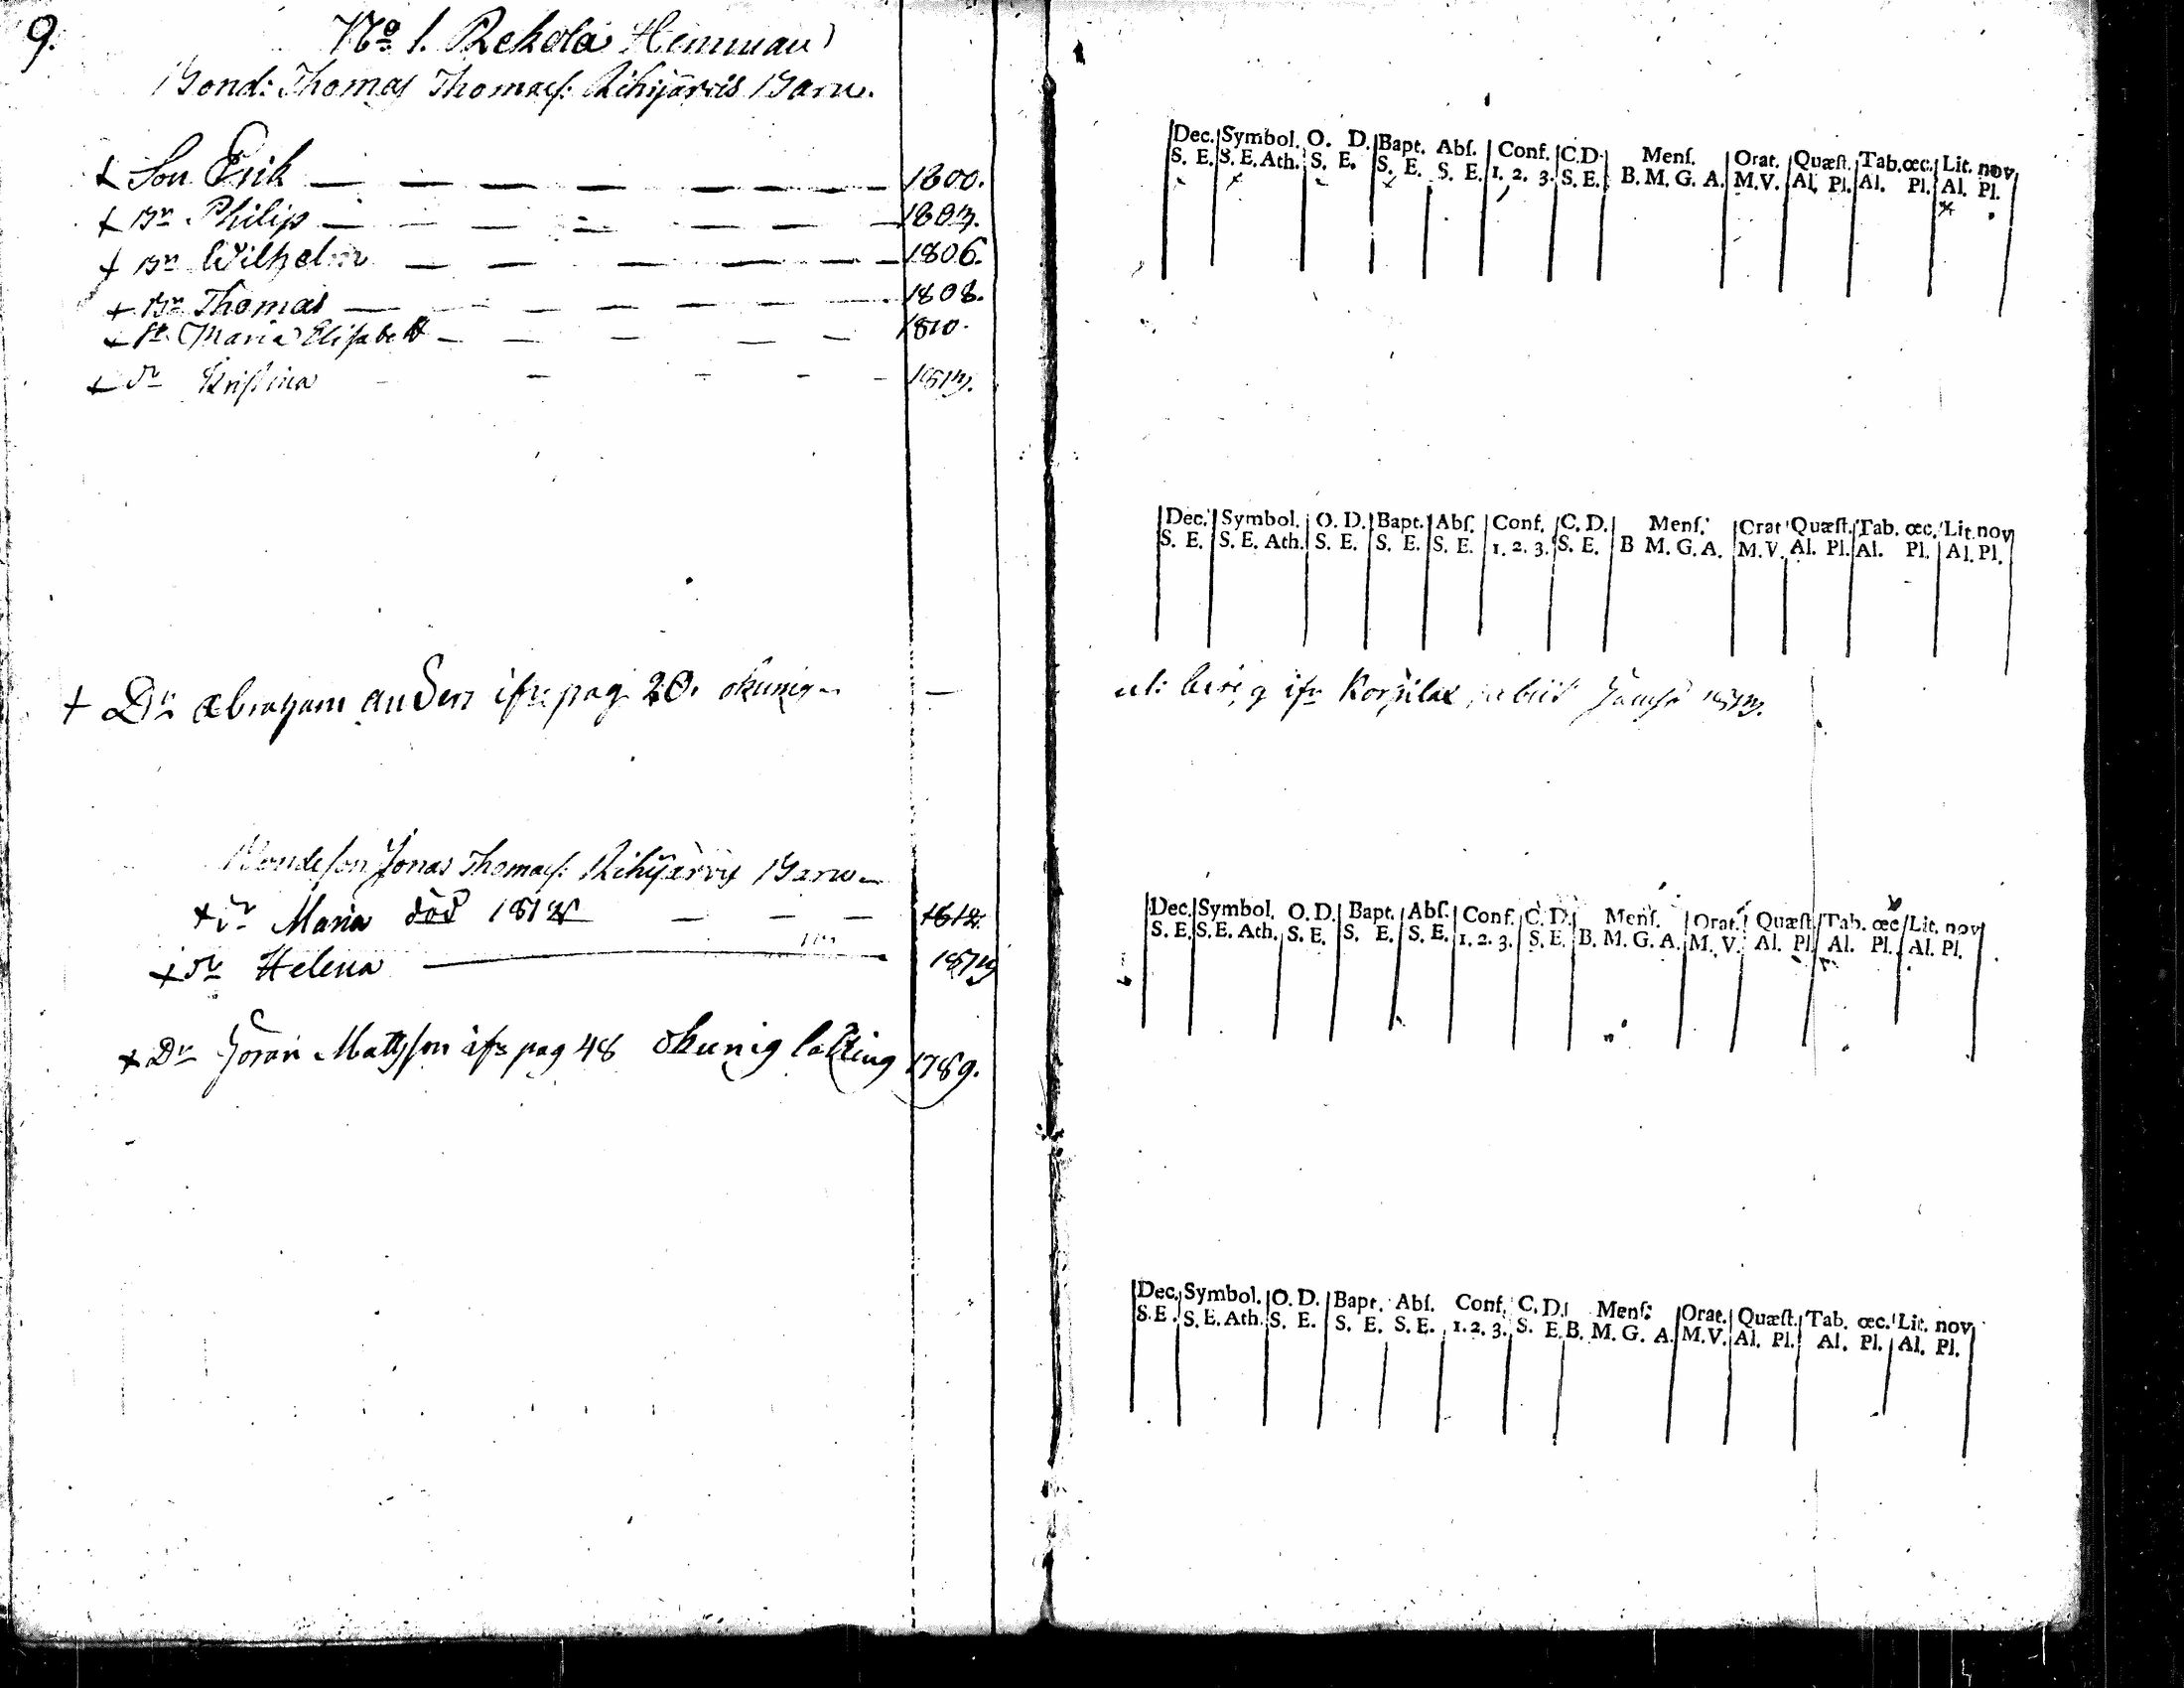 9.
No 1. Rekola Hemman
Bond: Thomas Thomass: Rihijärvis Barn.
+ Son Erik — — — — — — — 1800.
+ Br Philip — — — — — — 1803.
+ Br Wilhelm — — — — — 1806.
+ Br Thomas — — — — — — 1808.
+ Sr Maria Elisabett — — — — 1810.
+ Sr Kristina — — — — 1813.
+ Dr Abraham anders ifr. pag 20. okunig —
Bondeson Jonas Thomass: Rihijärvis Barn
+ Dr Maria död 1812 — — — 1812
+ Dr Helena — 1813
+ Dr Jöran Mattsson ifr pag 48 okunig 1789.
Dec. Symbol. O. D. Bapt. Abſ. Conf. C.D. Menſ. Orat. Quæſt. Tab. œc. Lit. nov
S. E. S. E. Ath. S. E. S. E. S. E. 1. 2. 3. S. E. B. M. G. A. M.V. Al. Pl. Al. Pl. Al. Pl.
Dec. Symbol. O. D. Bapt. Abſ. Conf. C. D. Menſ. Orat Quæſt. Tab. œc. Lit. nov
S. E. S. E. Ath. S. E. S. E. S. E. 1. 2. 3. S. E. B M. G. A. M.V. Al. Pl. Al. Pl. Al. Pl.
ifr Korsilax abiit
Dec. Symbol. O. D. Bapt. Abſ. Conf. C. D. Menſ. Orat. Quæſt. Tab. œc Lit. nov
S. E. S. E. Ath. S. E. S. E. S. E. 1. 2. 3. S. E. B. M. G. A. M. V. Al. Pl. Al. Pl. Al. Pl.
Dec. Symbol. O. D. Bapt. Abſ. Conf. C. D. Menſ: Orat. Quæſt. Tab. œc. Lit. nov
S. E. S. E. Ath. S. E. S. E. S. E. 1. 2. 3. S. E. B. M. G. A. M.V. Al. Pl. Al. Pl. Al. Pl.